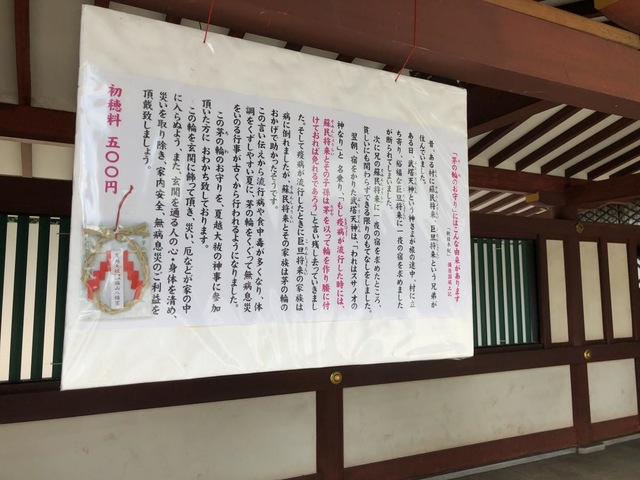 「茅の輪のお守り」にはこんな由来があります
昔、ある村に蘇民将来、巨旦将来という兄弟が
住んでいました。
ある日、武塔天神という神さまが旅の途中、村に立
ち寄り、裕福な巨旦将来に一夜の宿を求めました
が断られてしまいました。
次に兄の蘇民将来に一夜の宿を求めたところ、
貧しいにも関わらずできる限りのもてなしをしました。
翌朝、宿をかりた武塔天神は、「われはスサノオの
神なり」と名乗り、「もし疫病が流行した時には、
蘇民将来とその子孫は茅を以って輪を作り腰に付
けておれば免れるであろう」と言い残し去っていきまし
た。そして疫病が流行したときに巨旦将来の家族は
病に倒れましたが、蘇民将来とその家族は茅の輪の
おかげで助かったそうです。
この言い伝えから流行病や食中毒が多くなり、体
調をくずしやすい夏に、茅の輪をくぐって無病息災
をいのる行事が古くから行われるようになりました。
この茅の輪のお守りを、夏越大祓の神事に参加
頂いた方に おわかち致しております。
この輪を玄関に飾って頂き、災い、厄などが家の中
に入らぬよう、また、玄関を通る人の心・身体を清め、
災いを取り除き、家内安全、無病息災のご利益を
頂戴致しましょう。
初穂料 五〇〇円
福山八幡宮